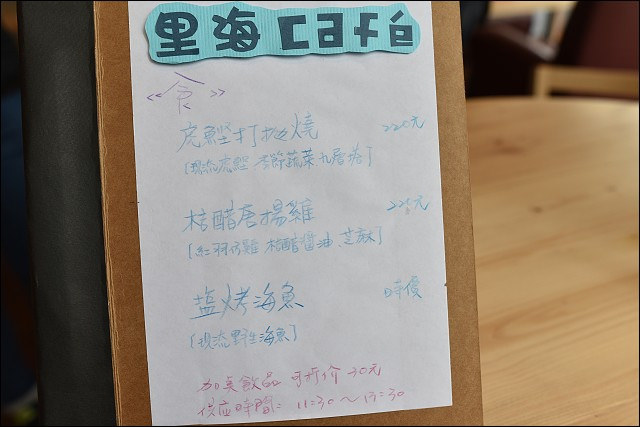 里海cafe
《食》
虎鰹打拋燒 220元
[現流虎鰹 季節蔬菜 九層塔]
桔醋唐揚雞 220元
[紅羽仔雞 桔醋醬油、芝麻]
塩烤海魚 時價
[現流野生海魚]
加点飲品 可折价 30元
供应時間: 11:30～17:30